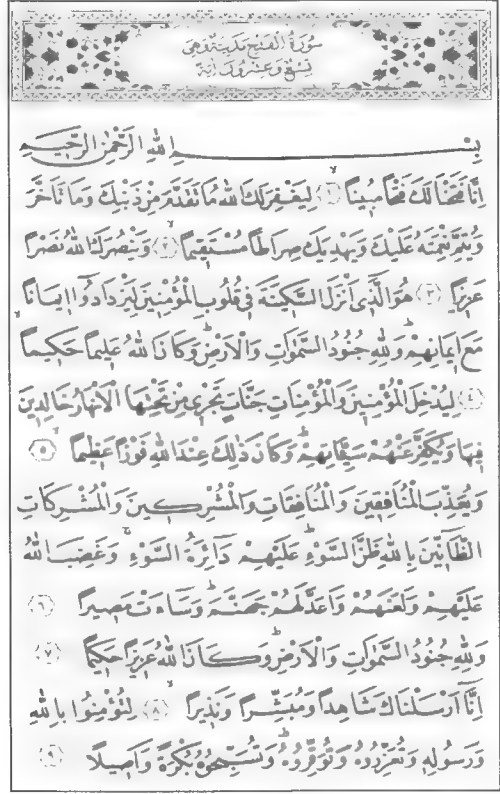 سُورَةُ الْفَتْحِ مَدَنِيَّةٌ وَهِيَ
تِسْعٌ وَعِشْرُونَ اٰيَةً
بِسْمِ اللّٰهِ الرَّحْمٰنِ الرَّحِيمِ
اِنَّا فَتَحْنَا لَكَ فَتْحًا مُبِينًا ﴿١﴾ لِيَغْفِرَ لَكَ اللّٰهُ مَا تَقَدَّمَ مِنْ ذَنْبِكَ وَمَا تَاَخَّرَ
وَيُتِمَّ نِعْمَتَهُ عَلَيْكَ وَيَهْدِيَكَ صِرَاطًا مُسْتَقِيمًا ﴿٢﴾ وَيَنْصُرَكَ اللّٰهُ نَصْرًا
عَزِيزًا ﴿٣﴾ هُوَ الَّذِٓي اَنْزَلَ السَّكِينَةَ فِي قُلُوبِ الْمُؤْمِنِينَ لِيَزْدَادُٓوا اِيمَانًا
مَعَ اِيمَانِهِمْ وَلِلّٰهِ جُنُودُ السَّمٰوَاتِ وَالْاَرْضِ وَكَانَ اللّٰهُ عَلِيمًا حَكِيمًا
﴿٤﴾ لِيُدْخِلَ الْمُؤْمِنِينَ وَالْمُؤْمِنَاتِ جَنَّاتٍ تَجْرِي مِنْ تَحْتِهَا الْاَنْهَارُ خَالِدِينَ
فِيهَا وَيُكَفِّرَ عَنْهُمْ سَيِّـَٔاتِهِمْ وَكَانَ ذٰلِكَ عِنْدَ اللّٰهِ فَوْزًا عَظِيمًا ﴿٥﴾
وَيُعَذِّبَ الْمُنَافِقِينَ وَالْمُنَافِقَاتِ وَالْمُشْرِكِينَ وَالْمُشْرِكَاتِ
الظَّٓانِّينَ بِاللّٰهِ ظَنَّ السَّوْءِ عَلَيْهِمْ دَٓائِرَةُ السَّوْءِ وَغَضِبَ اللّٰهُ
عَلَيْهِمْ وَلَعَنَهُمْ وَاَعَدَّ لَهُمْ جَهَنَّمَ وَسَٓاءَتْ مَصِيرًا ﴿٦﴾
وَلِلّٰهِ جُنُودُ السَّمٰوَاتِ وَالْاَرْضِ وَكَانَ اللّٰهُ عَزِيزًا حَكِيمًا ﴿٧﴾
اِنَّٓا اَرْسَلْنَاكَ شَاهِدًا وَمُبَشِّرًا وَنَذِيرًا ﴿٨﴾ لِتُؤْمِنُوا بِاللّٰهِ
وَرَسُولِهِ وَتُعَزِّرُوهُ وَتُوَقِّرُوهُ وَتُسَبِّحُوهُ بُكْرَةً وَاَصِيلًا ﴿٩﴾